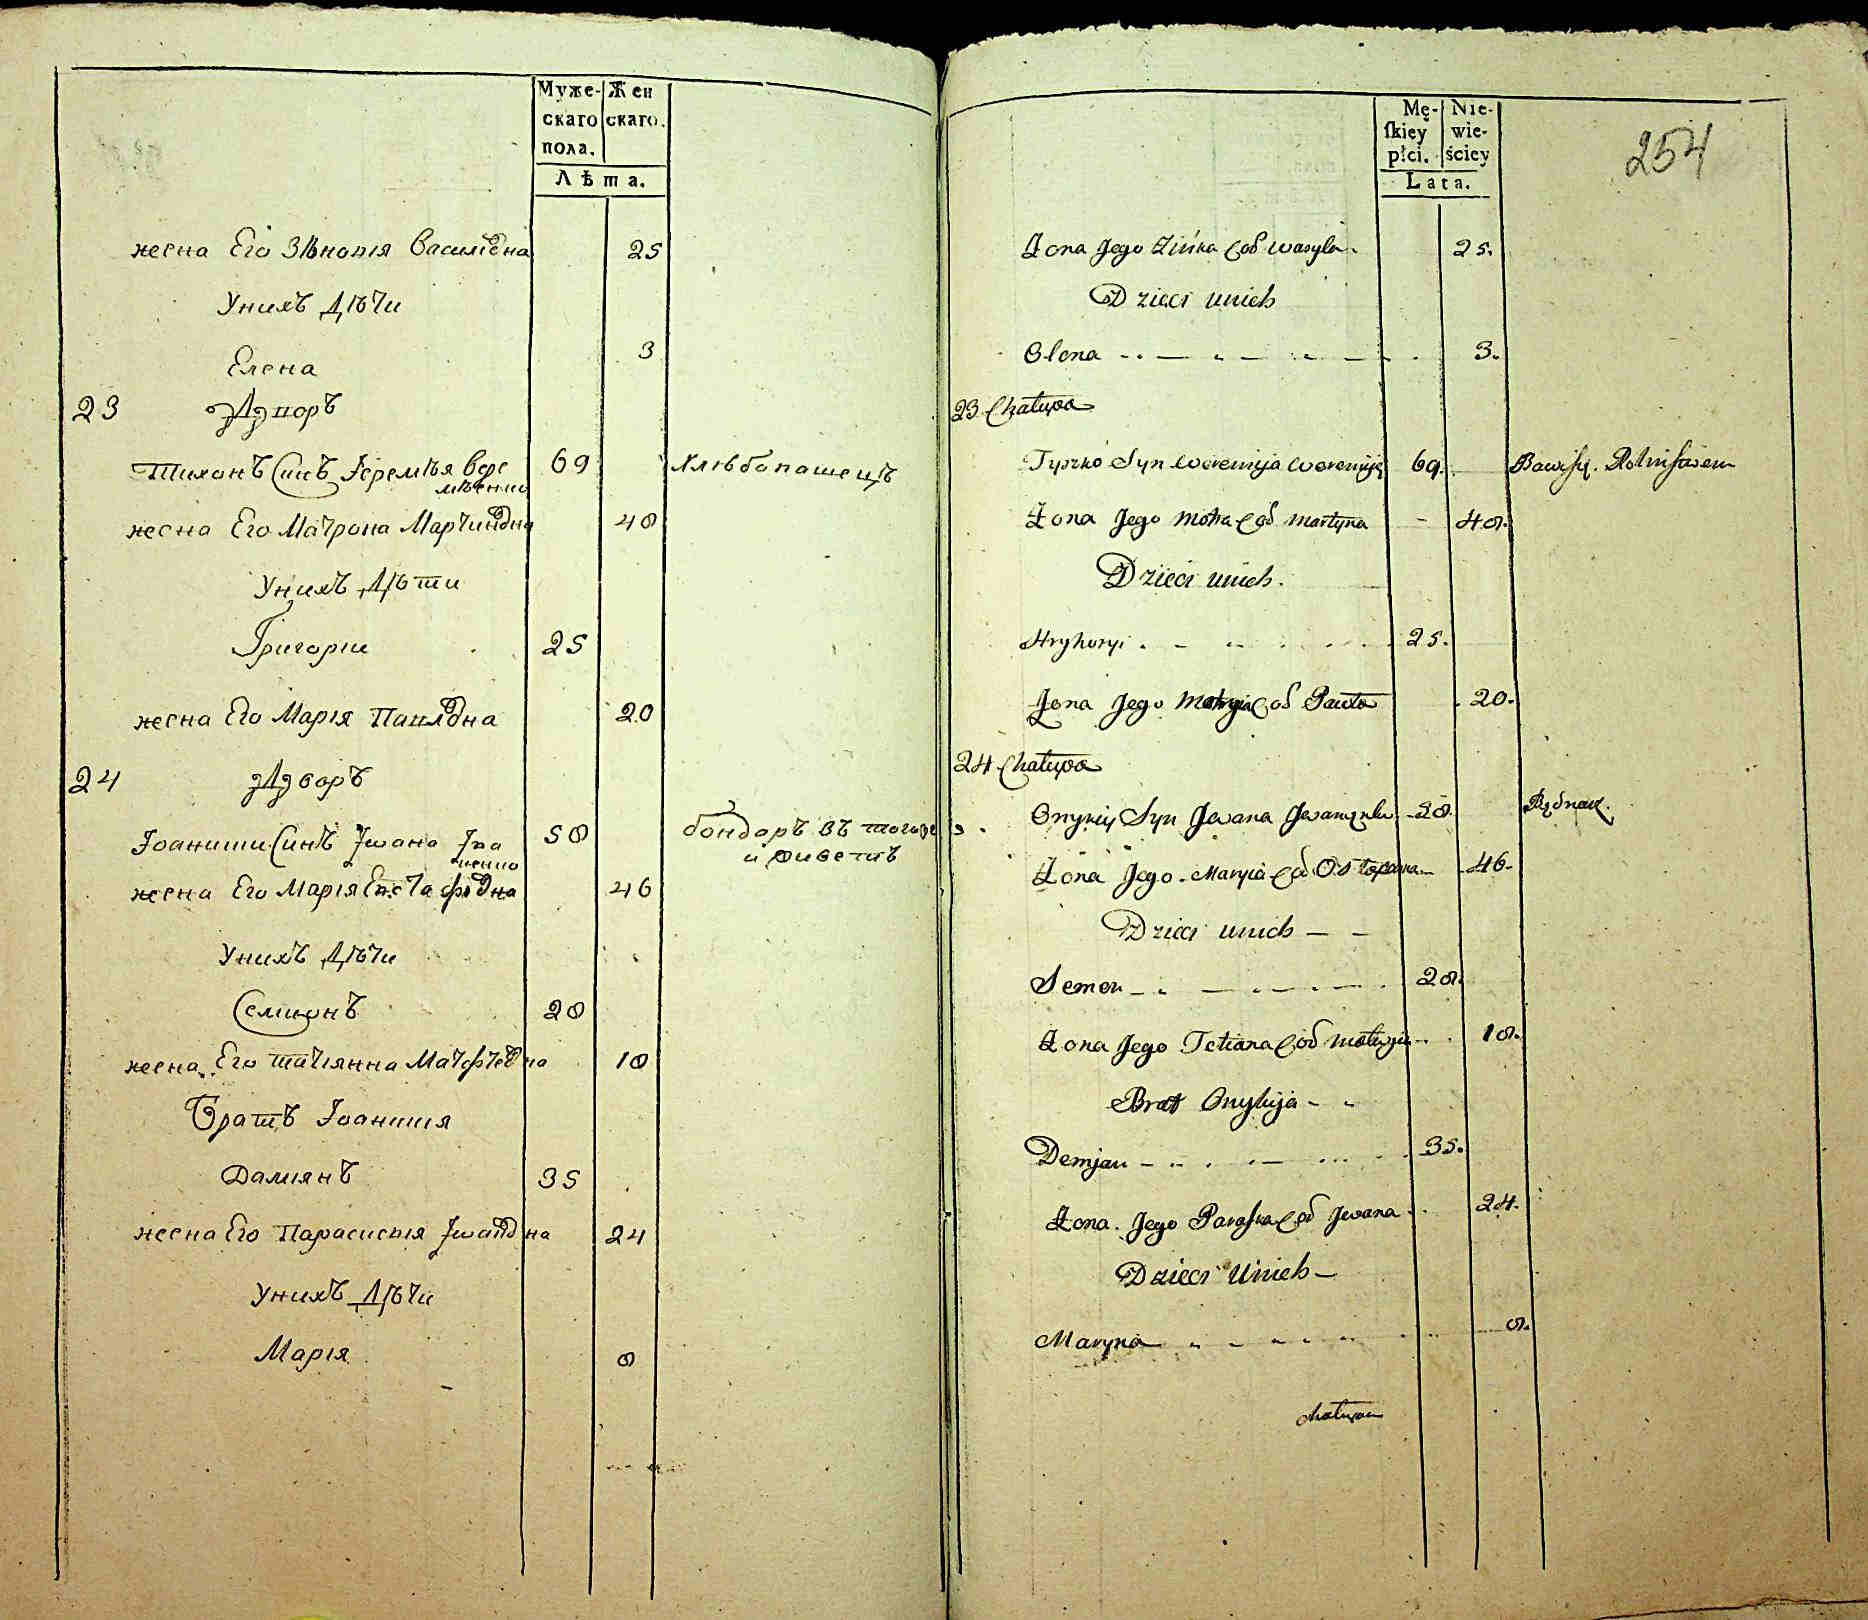 Муже-
скаго
пола.
Жен
скаго.
Лѣта.
жена Его Зѣновія Василіевна 25
Унихъ Дѣти
Елена 3
23 Дворъ
Тихонъ Синъ Іеремѣя Вере 69 Хлѣбопашецъ
мѣенко
жена Его Матрона Мартиновна 48
Унихъ Дѣти
Григории 25
жена Его Марія Павловна 20
24 Дворъ
Іоаники Синъ Івана Іва 58 бондаръ въ того
ненко и живетъ
жена Его Марія Евстафіевна 46
Унихъ Дѣти
Семионъ 28
жена Его татіянна Матфѣевна 18
Братъ Іоаникия
Дамиянъ 35
жена Его Параскевія Івановна 24
Унихъ Дѣти
Марія 8
Mę-
skiey
płci.
Nie-
wie-
ściey
Lata.
254
Żona Jego Zińka Cos Wasyla. 25.
Dzieci unich
Olena 3.
23 Chatupa
Tyszko Syn Weremija Weremiję 69. Bawi się Rolnictwem
Żona Jego Motra Cos Martyna 48.
Dzieci unich.
Hryhoryi 25.
Żona Jego Marya Cos Pawla 20.
24 Chatupa
Onykiy Syn Jwana Jwanenko 58. Bednarz.
Żona Jego Maryia Cos Ostapowa 46.
Dzieci unich
Semen 28.
Żona Jego Tetiana Cos 18.
Brat Onykija
Demjan 35.
Żona Jego Paraska Cos Jwana 24.
Dzieci Unich
Maryna 8.
chatupa